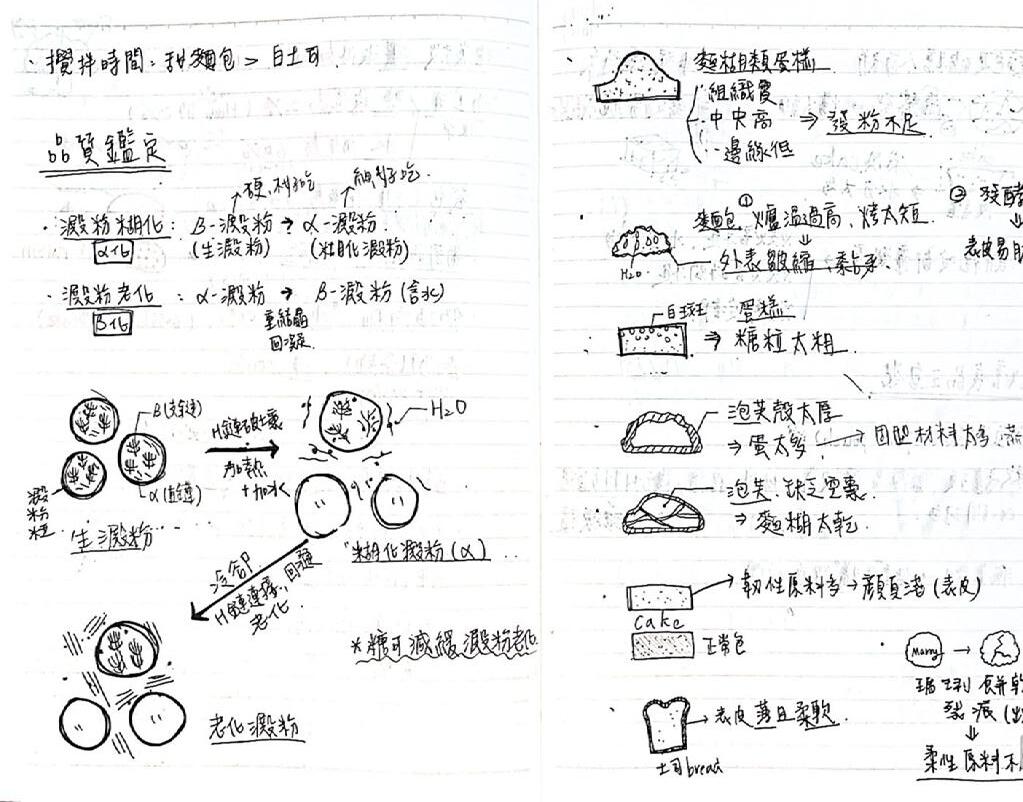 · 攪拌時間：甜麵包 > 白土司
品質鑑定
硬,不好吃
細,好吃
· 澱粉糊化： β-澱粉 → α-澱粉
α化 (生澱粉) (糊化澱粉)
· 澱粉老化： α-澱粉 → β-澱粉 (含水)
β化 重結晶
回凝
β(支鏈)
α(直鏈)
澱粉粒
生澱粉
H鍵破壞
加熱
+加水
H₂O
糊化澱粉(α)
冷卻
H鍵連接、回凝
老化
*糖可減緩澱粉老化
老化澱粉
麵糊類蛋糕
組織實
中央高 ⇒ 發粉不足
邊緣低
麵包 ① 爐溫過高、烤太短
② 發酵
H₂O
外表皺縮、黏
表皮易
白斑 蛋糕
⇒ 糖粒太粗
泡芙殼太厚
⇒ 蛋太多 → 因凹材料太多
泡芙.缺乏空囊
⇒ 麵糊太乾
韌性原料多→顏色淺(表皮)
Cake
正常色
Marry →
瑪利餅乾
裂派
⇓
柔性原料不
→ 表皮薄且柔軟
土司bread